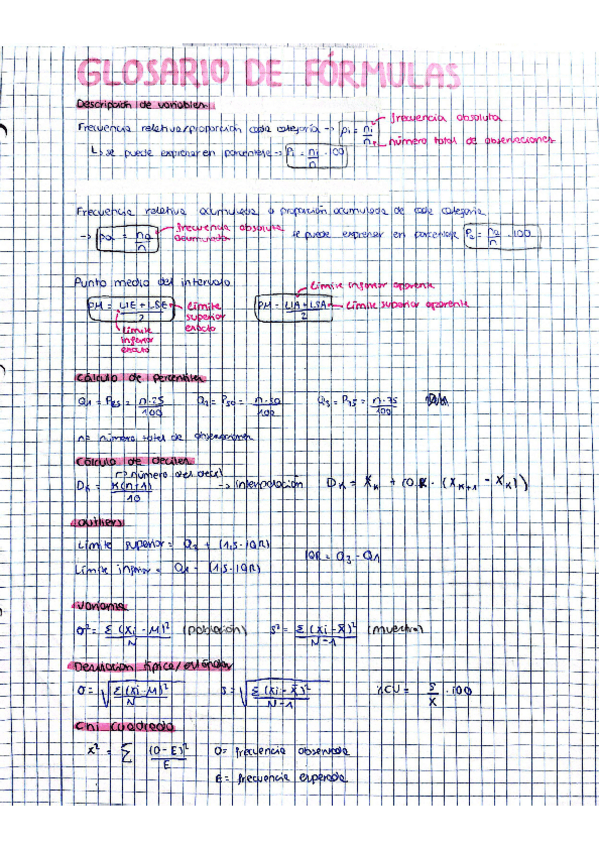 GLOSARIO DE FÓRMULAS
Descripción de variables
Frecuencia relativa/proporción cada categoría → pi = ni/n → frecuencia absoluta
→ número total de observaciones
↳ se puede expresar en porcentaje → Pi = ni/n · 100
Frecuencia relativa acumulada o proporción acumulada de cada categoría
→ pa = na/n → frecuencia absoluta acumulada se puede expresar en porcentaje Pa = pa/n · 100
Punto medio del intervalo
PM = LIE + LSE / 2 → Límite superior exacto
Límite inferior exacto
PM = LIA + LSA / 2 → Límite superior aparente
Límite inferior aparente
Cálculo de percentiles
Q1 = P25 = n·25/100 Q2 = P50 = n·50/100 Q3 = P75 = n·75/100
n = número total de observaciones
Cálculo de deciles
→ número del decil
DK = K(n+1)/10 → Interpolación DK = XK + (0. · (XK+1 - XK))
outliers
Límite superior = Q3 + (1,5·IQR)
IQR = Q3 - Q1
Límite inferior = Q1 - (1,5·IQR)
varianza
σ² = Σ(Xi - M)²/N (población) S² = Σ(Xi - X̄)²/N-1 (muestra)
Desviación típica/estándar
σ = √Σ(Xi - M)²/N S = √Σ(Xi - X̄)²/N-1 %CV = S/X · 100
Chi cuadrado
x² = Σ (O - E)²/E O = frecuencia observada
E = frecuencia esperada